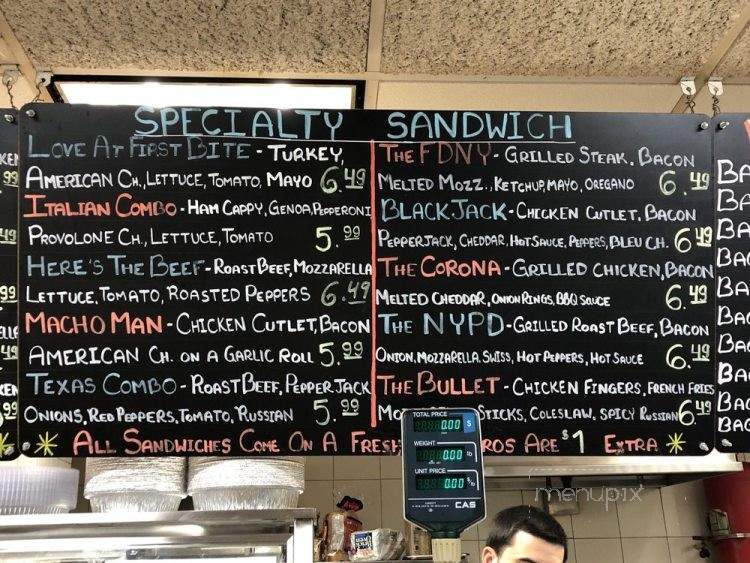 SPECIALTY SANDWICH
LOVE AT FIRST BITE - TURKEY,
AMERICAN CH., LETTUCE, TOMATO, MAYO 6.49
ITALIAN COMBO - HAM CAPPY, GENOA, PEPPERONI
PROVOLONE CH., LETTUCE, TOMATO 5.99
HERE'S THE BEEF - ROAST BEEF, MOZZARELLA
LETTUCE, TOMATO, ROASTED PEPPERS 6.49
MACHO MAN - CHICKEN CUTLET, BACON
AMERICAN CH. ON A GARLIC ROLL 5.99
TEXAS COMBO - ROAST BEEF, PEPPER JACK
ONIONS, RED PEPPERS, TOMATO, RUSSIAN 5.99
THE FDNY - GRILLED STEAK, BACON
MELTED MOZZ., KETCHUP, MAYO, OREGANO 6.49
BLACK JACK - CHICKEN CUTLET, BACON
PEPPERJACK, CHEDDAR, HOT SAUCE, PEPPERS, BLEU CH. 6.49
THE CORONA - GRILLED CHICKEN, BACON
MELTED CHEDDAR, ONION RINGS, BBQ SAUCE 6.49
THE NYPD - GRILLED ROAST BEEF, BACON
ONION, MOZZARELLA, SWISS, HOT PEPPERS, HOT SAUCE 6.49
THE BULLET - CHICKEN FINGERS, FRENCH FRIES
STICKS, COLESLAW, SPICY RUSSIAN 6.49
ALL SANDWICHES COME ON A FRES ROS ARE $1 EXTRA
TOTAL PRICE
0.00 $
WEIGHT
0.00 lb
UNIT PRICE
0.00 $/lb
CAS
menupix